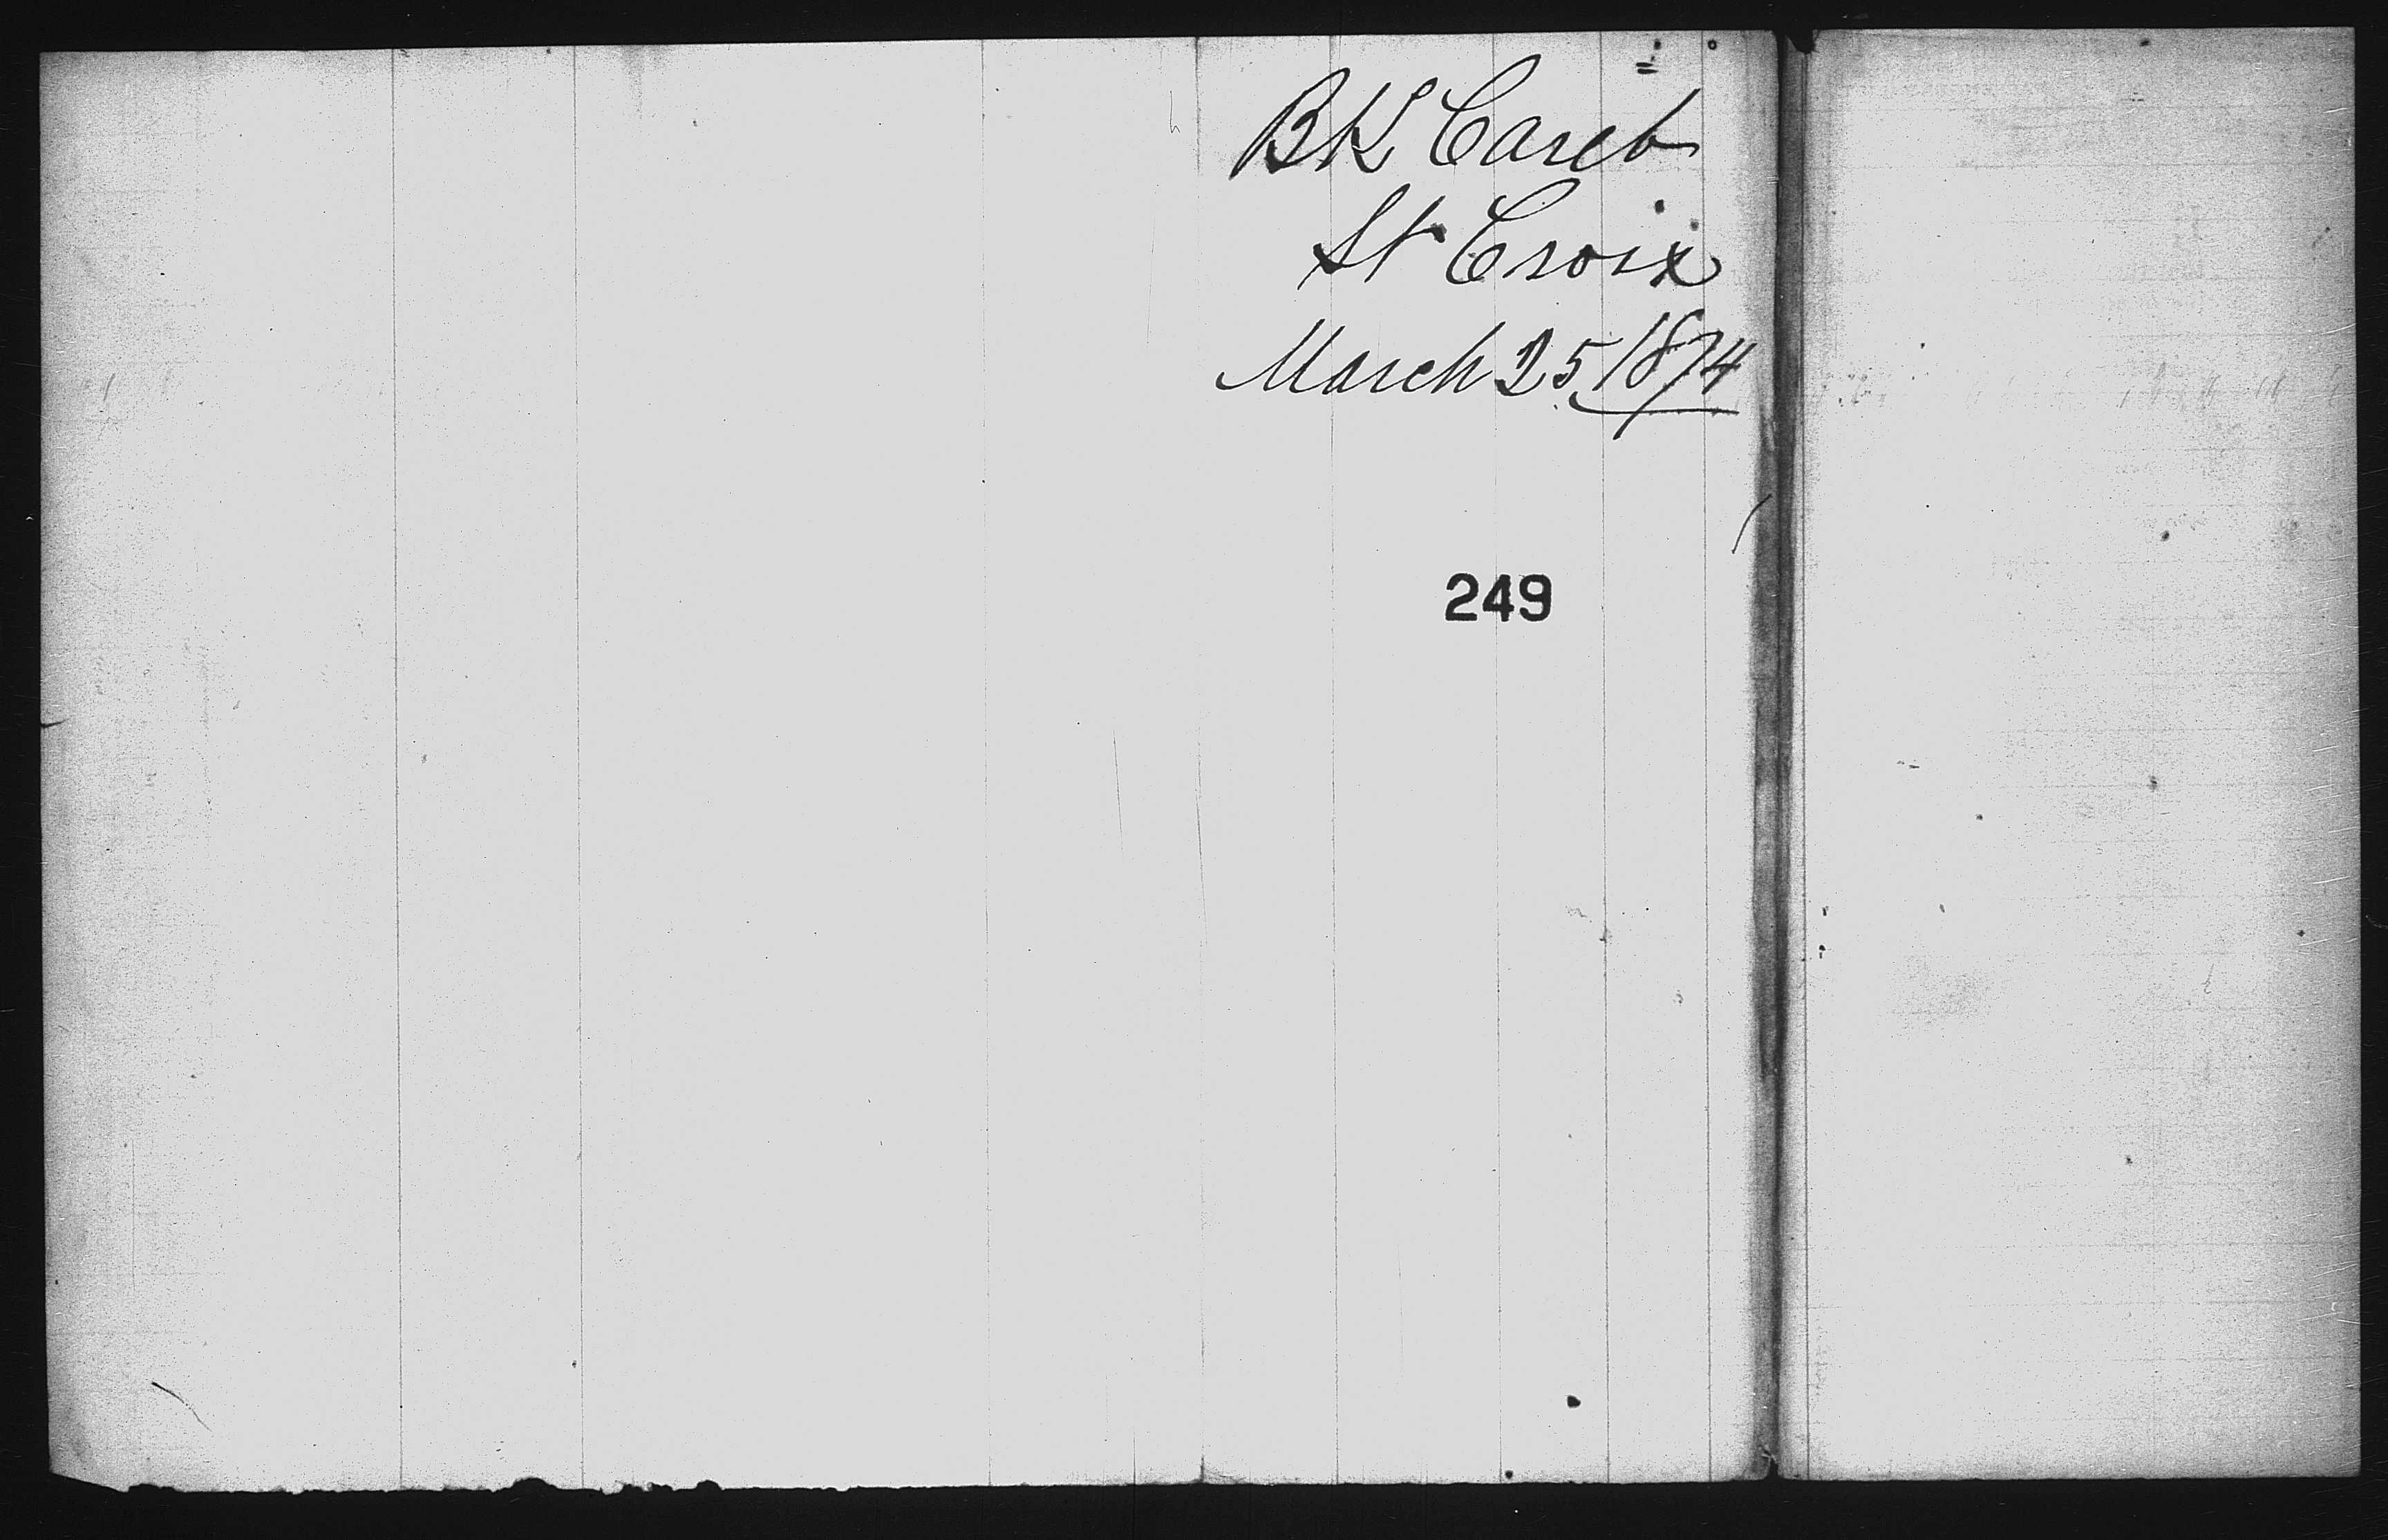 BK Carib
St Croix
March 25 1874
249